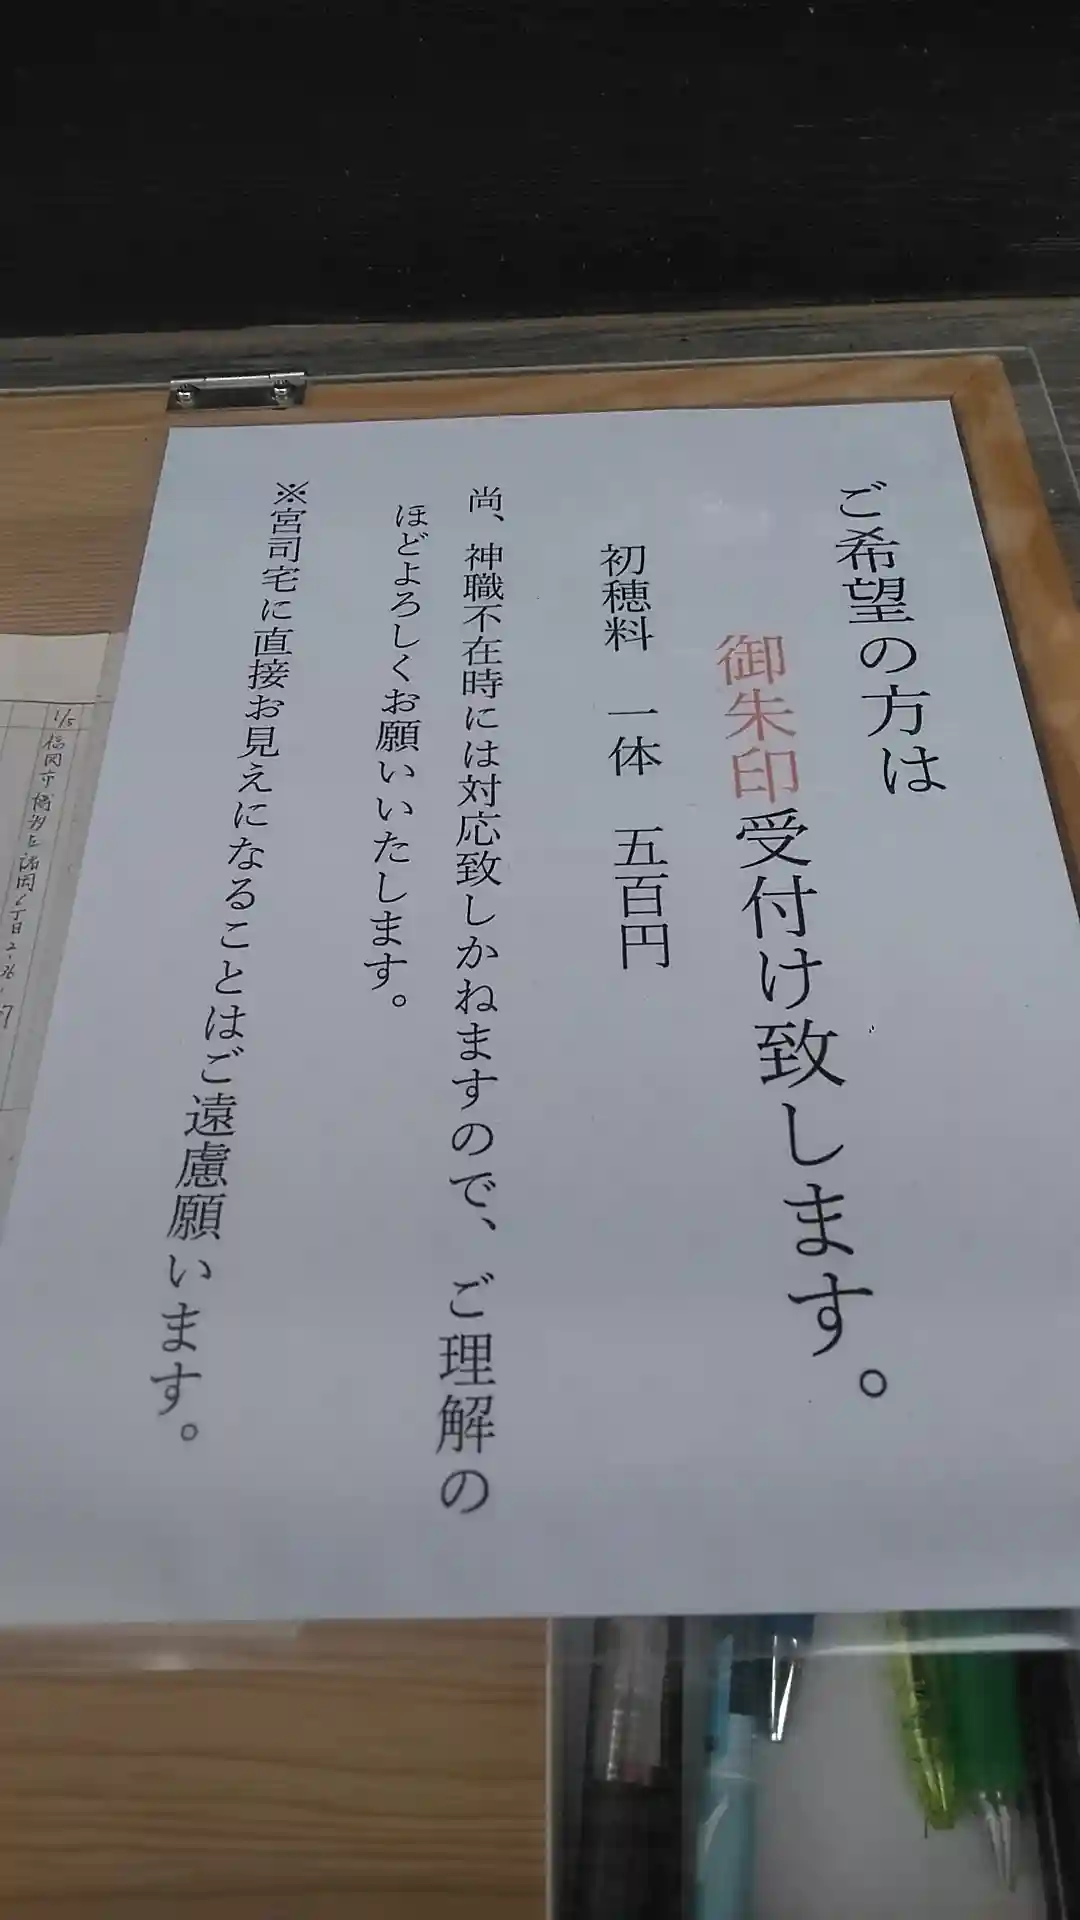 ご希望の方は
御朱印受付け致します。
初穂料 一体 五百円
尚、神職不在時には対応致しかねますので、ご理解の
ほどよろしくお願いいたします。
※宮司宅に直接お見えになることはご遠慮願います。
1/5
福岡市博多区諸岡